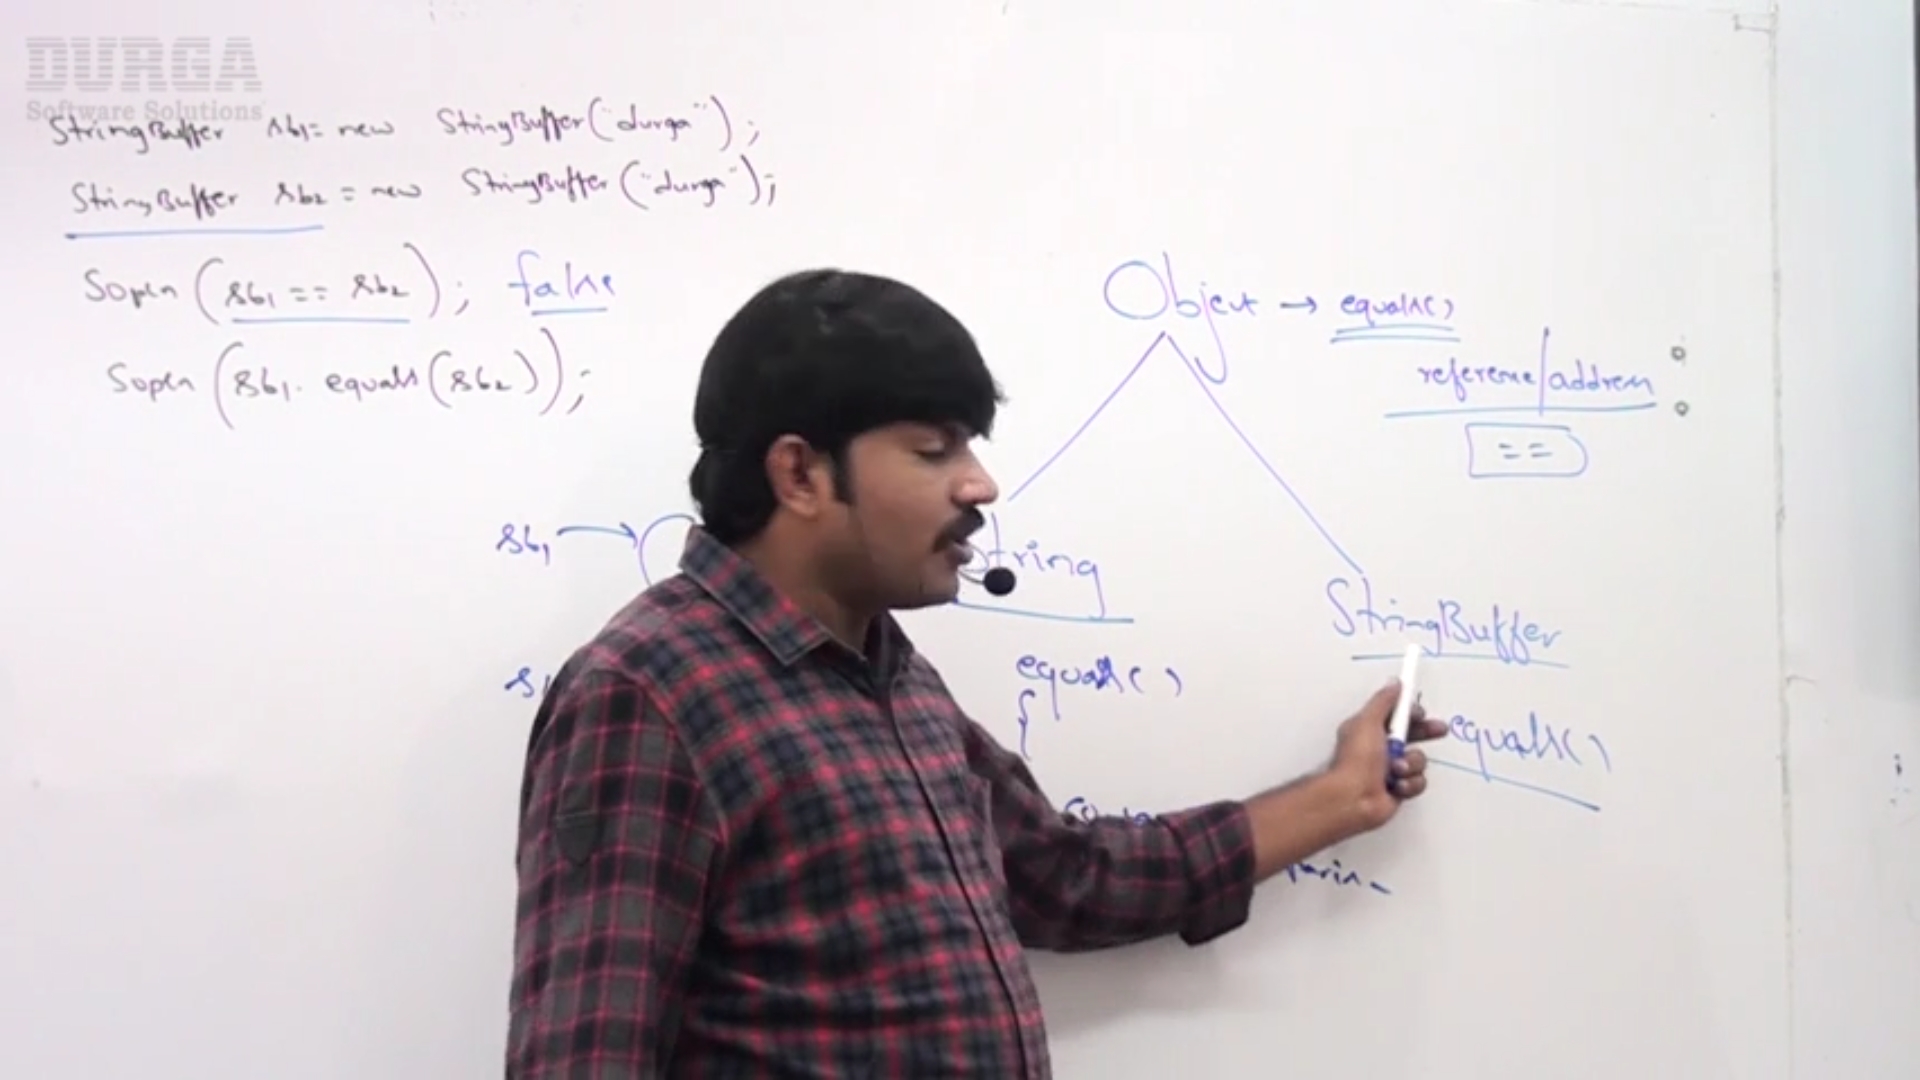 DURGA
Software Solutions
StringBuffer sb1 = new StringBuffer("durga");
StringBuffer sb2 = new StringBuffer("durga");
Sopln (sb1 == sb2); false
Sopln (sb1.equals(sb2));
Object → equals()
reference/address
==
sb1
String
StringBuffer
equals()
{
equals()